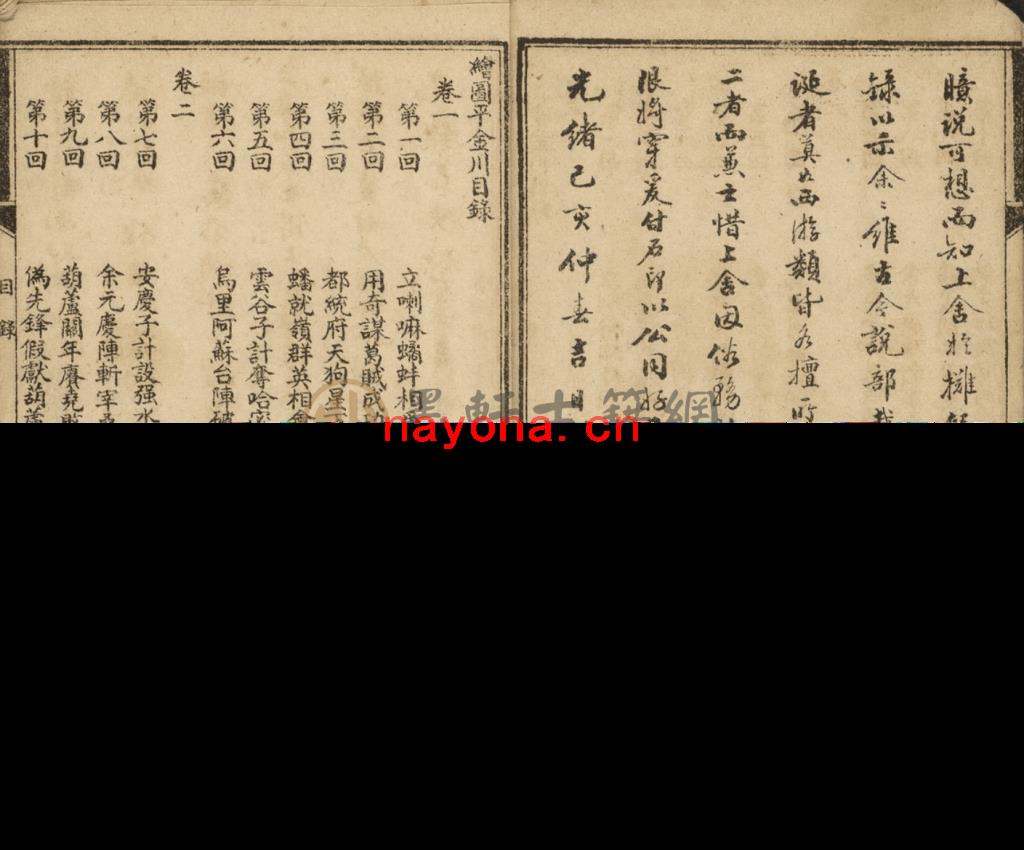 臆说可想而知上舍於攤
錄以示余〻維古今說部
誕者莫如西游類皆各擅
二者而兼之惜上舍因俗務
付石印以公同好
光緒己亥仲春吉日
繪圖平金川目錄
卷一
第一回 立喇嘛蟠蚌相
第二回 用奇謀葛賊成功
第三回 都統府天狗星
第四回 蟠就嶺群英相會
第五回 雲谷子計奪哈密
第六回 烏里阿蘇台陣破
卷二
第七回 安慶子計設强水
第八回 余元慶陣斬宰
第九回 葫蘆關年賡堯
第十回 偽先鋒假獻葫蘆
目錄
墨軒古籍網
nayona. cn